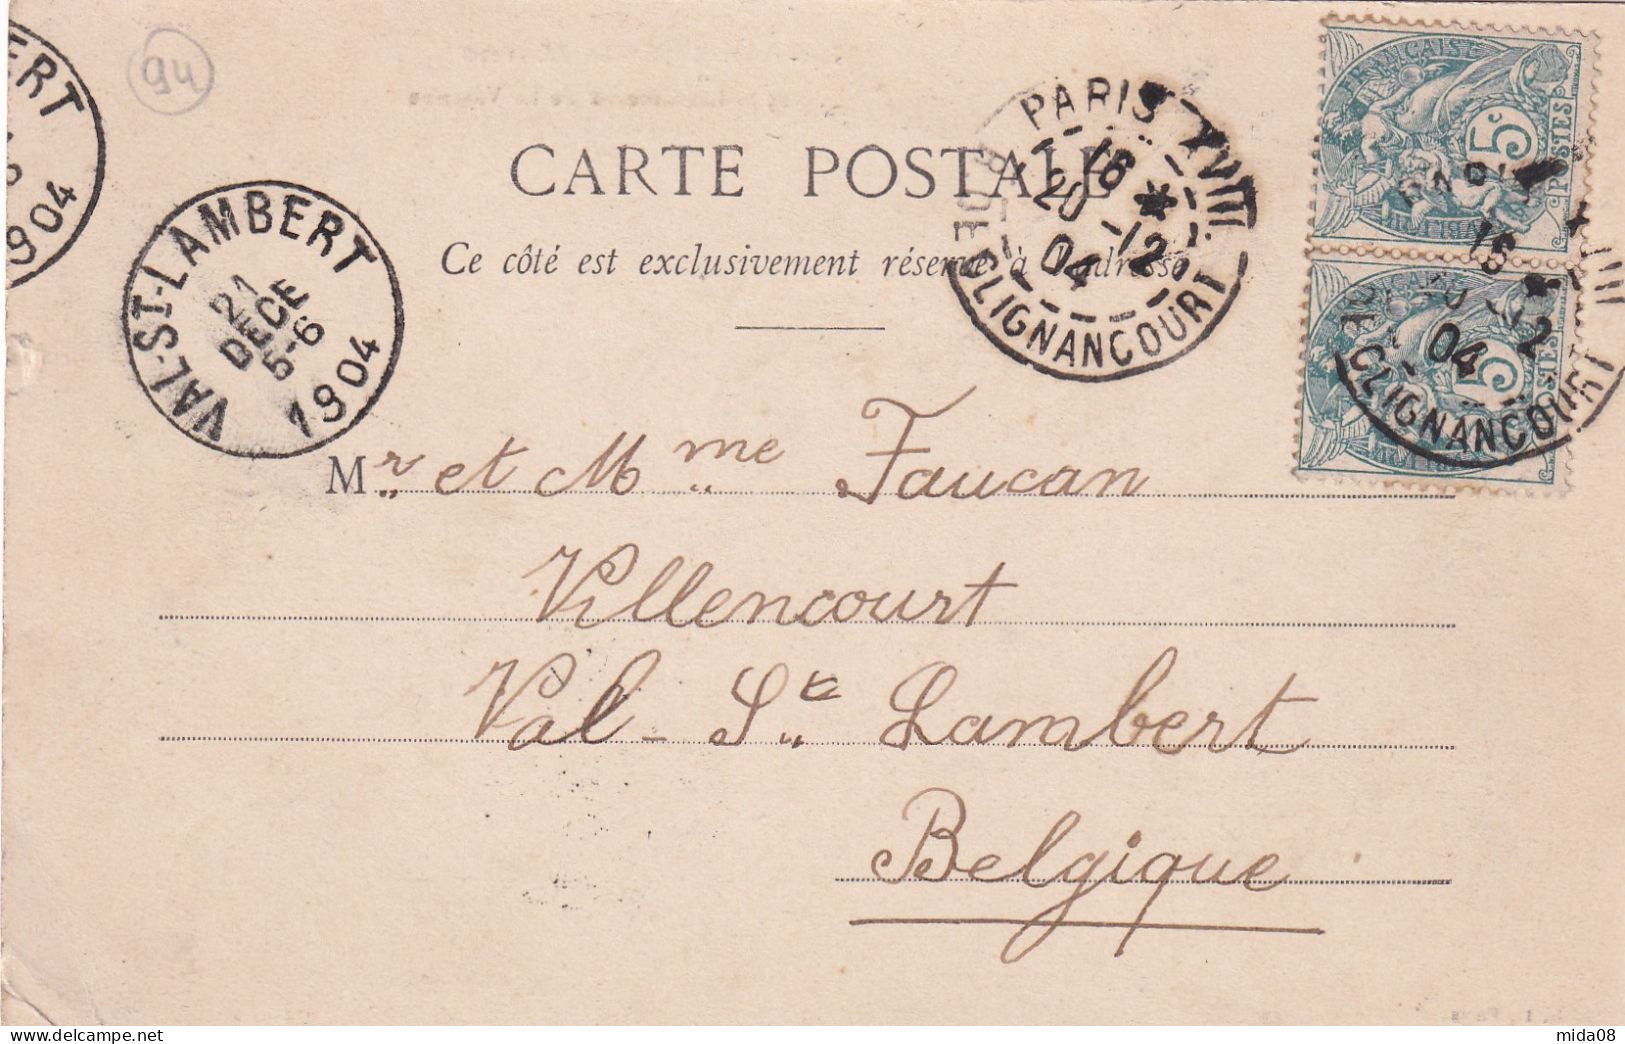 94
CARTE POSTALE
Ce côté est exclusivement réservé à l'adresse
PARIS XVIII
16
20 -12
04
CLIGNANCOURT
RÉPUBLIQUE FRANÇAISE
5c
POSTES
PARIS
16
12
04
CLIGNANCOURT
5
VAL-ST-LAMBERT
21
DECE
5-6
1904
ERT
1904
Mr et Mme Faucan
Villencourt
Val-St Lambert
Belgique
mida08